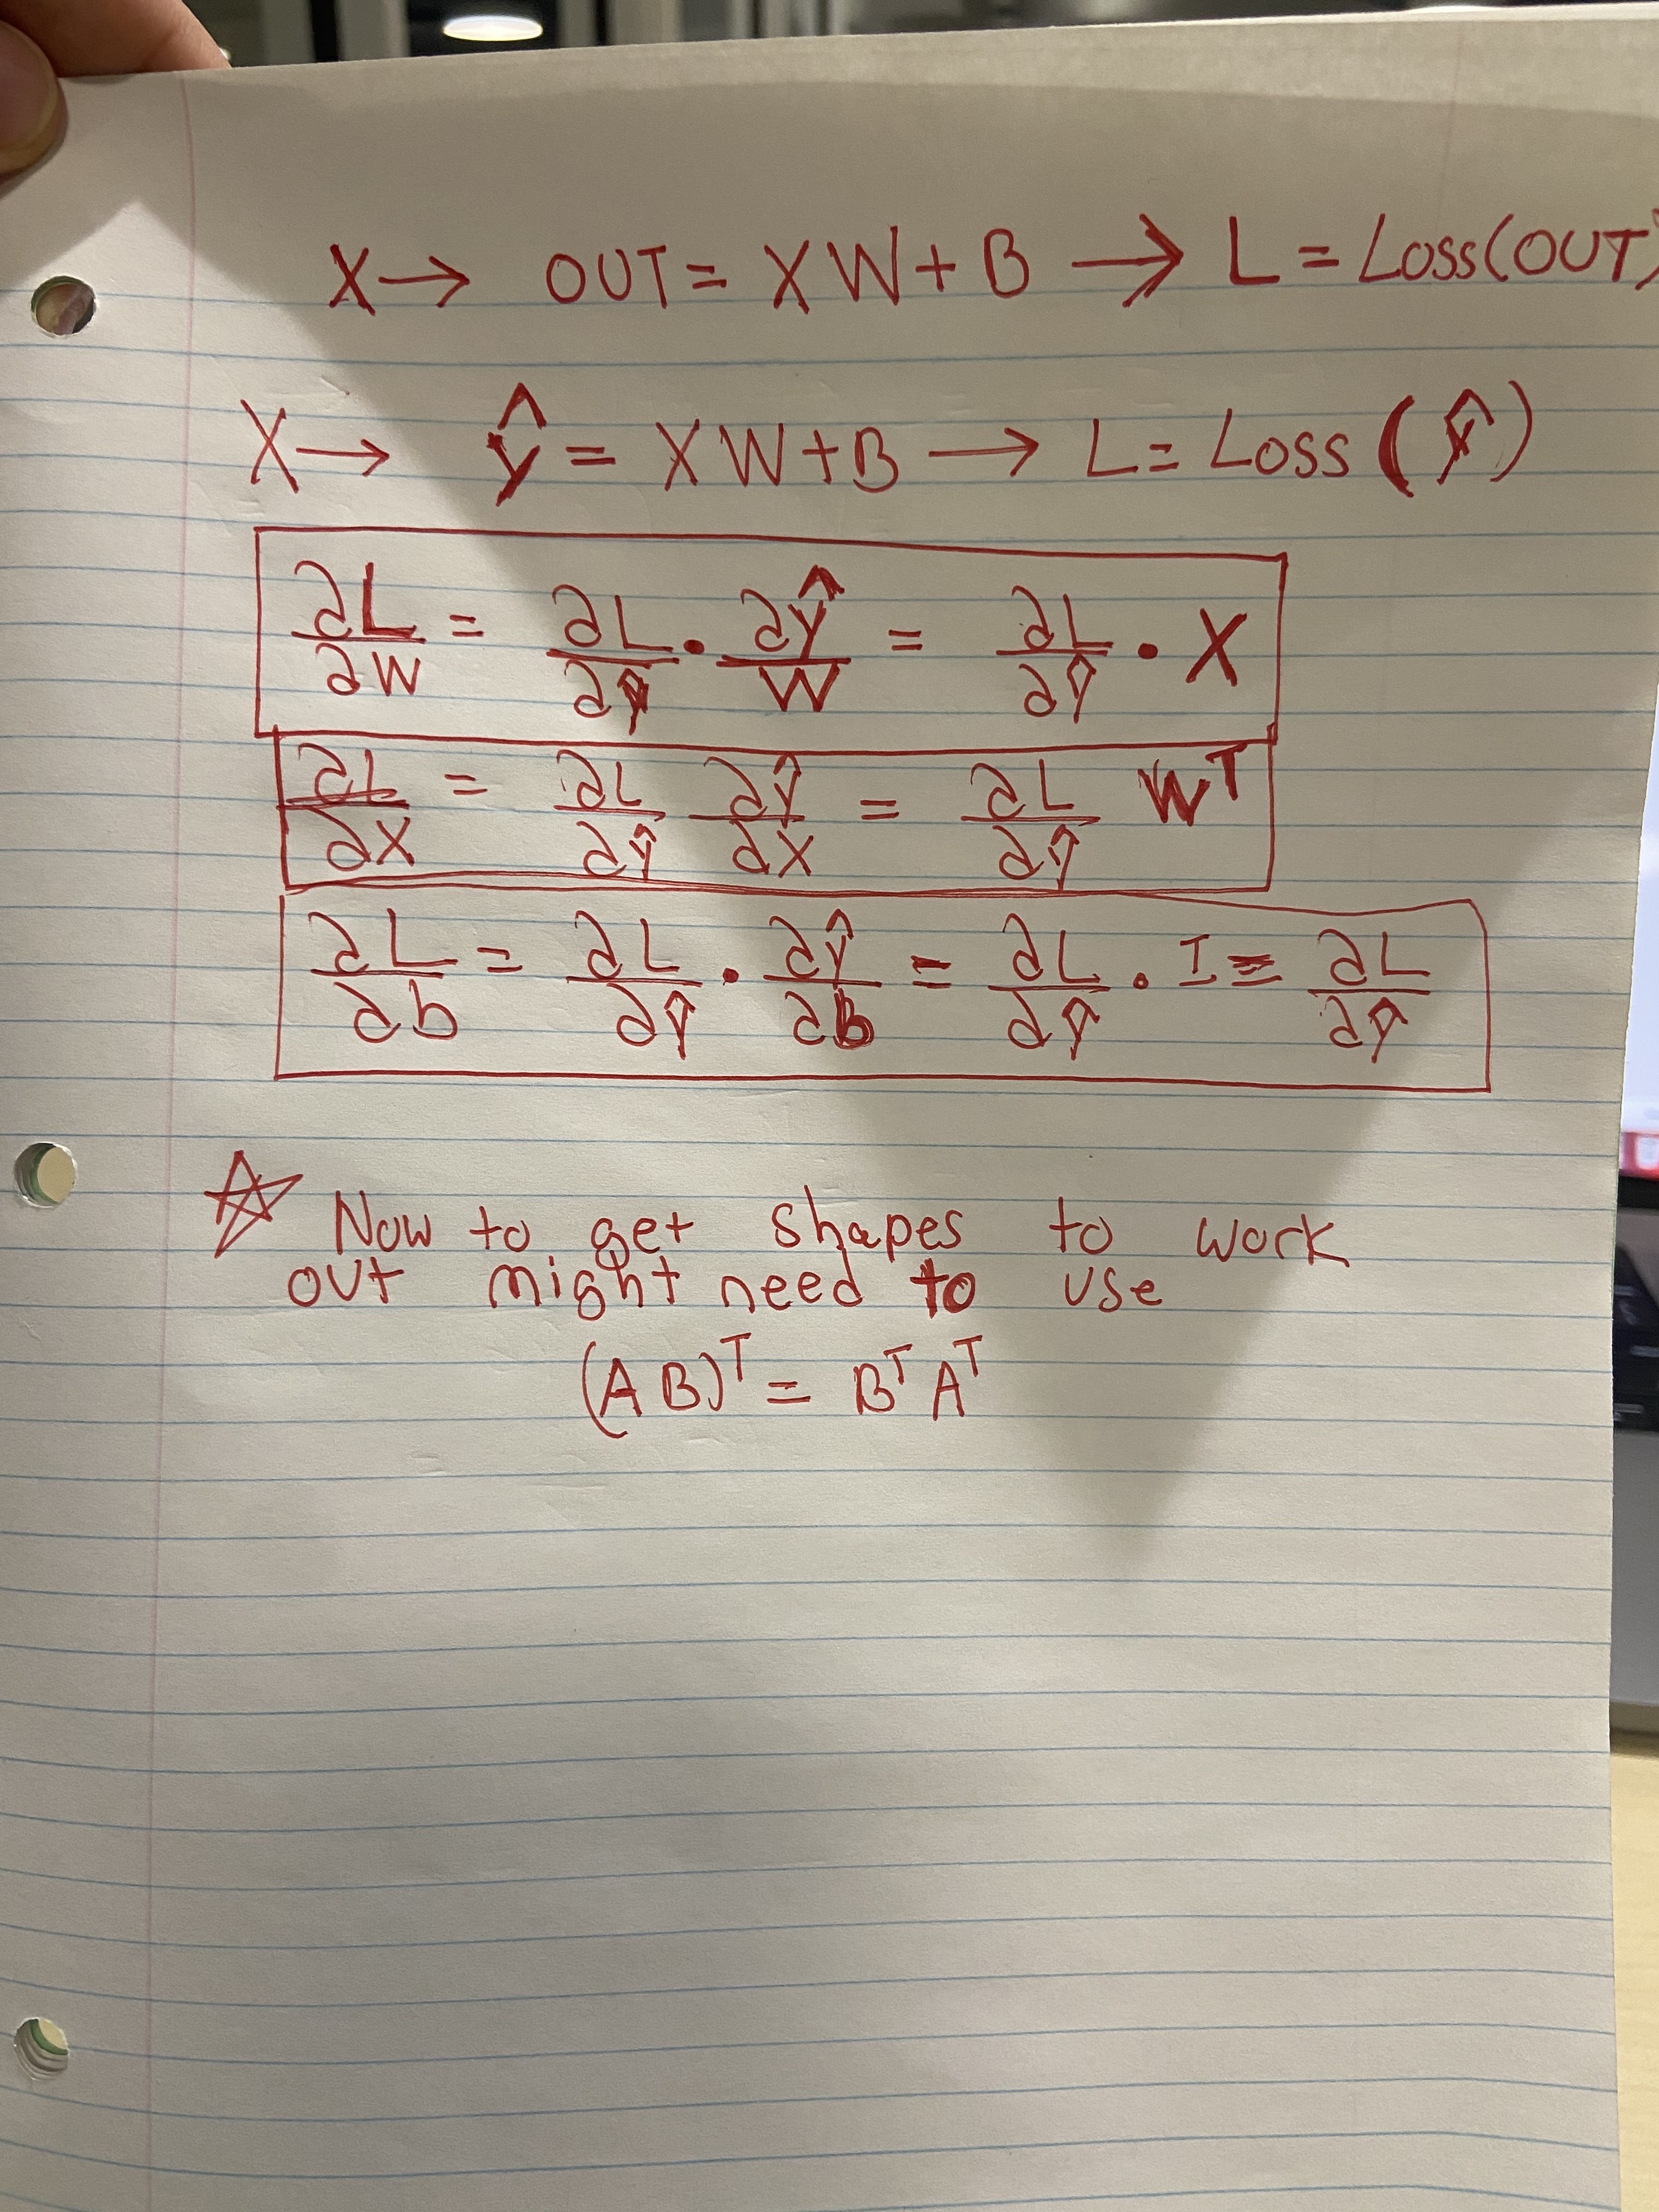 X → OUT = XW + B → L = Loss(OUT)
X → Ŷ = XW + B → L = Loss(Ŷ)
∂L/∂W = ∂L/∂Ŷ · ∂Ŷ/W = ∂L/∂Ŷ · X
∂L/∂X = ∂L/∂Ŷ ∂Ŷ/∂X = ∂L/∂Ŷ Wᵀ
∂L/∂b = ∂L/∂Ŷ · ∂Ŷ/∂b = ∂L/∂Ŷ · I = ∂L/∂Ŷ
☆ Now to get shapes to work
out might need to use
(AB)ᵀ = Bᵀ Aᵀ